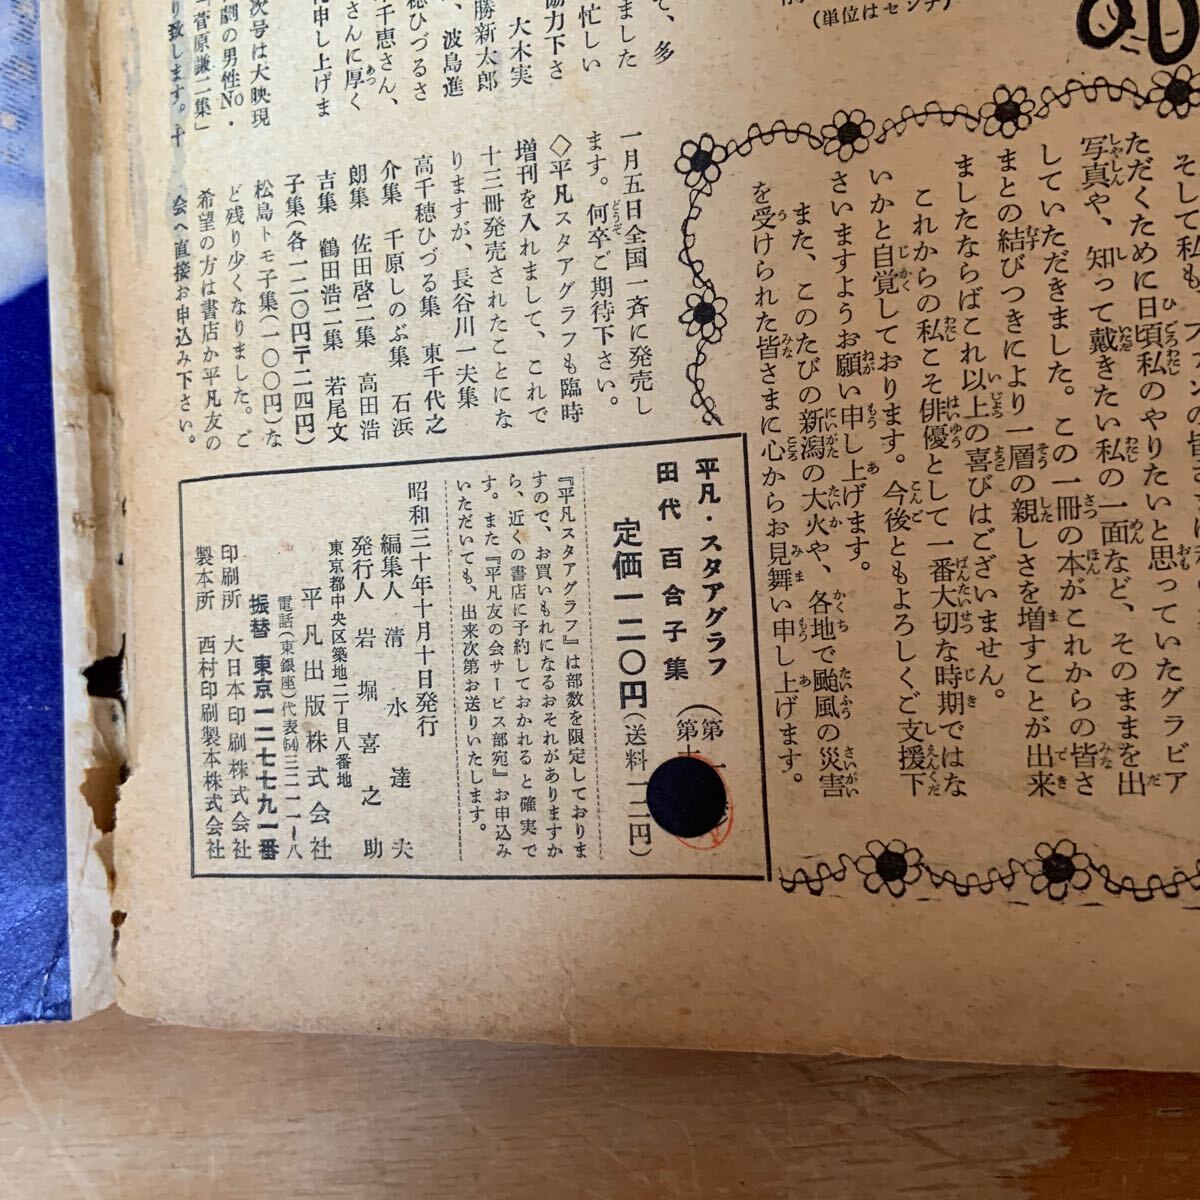 (単位はセンチ)
そして私も、ファンの皆さ
ただくために日頃私のやりたいと思っていたグラビア
写真や、知って戴きたい私の一面など、そのままを出
していただきました。この一冊の本がこれからの皆さ
まとの結びつきにより一層の親しさを増すことが出来
ましたならばこれ以上の喜びはございません。
これからの私こそ俳優として一番大切な時期ではな
いかと自覚しております。今後ともよろしくご支援下
さいますようお願い申し上げます。
また、このたびの新潟の大火や、各地で颱風の災害
を受けられた皆さまに心からお見舞い申し上げます。
て、多
ました
忙しい
協力下さ
大木実
勝新太郎
、波島進
穂ひづるさ
千恵さん、
さんに厚く
礼申し上げま
次号は大映現
劇の男性No.
「菅原謙二集」
り致します。十
一月五日全国一斉に発売し
ます。何卒ご期待下さい。
◇平凡スタアグラフも臨時
増刊を入れまして、これで
十三冊発売されたことにな
りますが、長谷川一夫集
高千穂ひづる集 東千代之
介集 千原しのぶ集 石浜
朗集 佐田啓二集 高田浩
吉集 鶴田浩二集 若尾文
子集(各一二〇円〒二四円)
松島トモ子集(一〇〇円)な
ど残り少くなりました。ご
希望の方は書店か平凡友の
会へ直接お申込み下さい。
平凡・スタアグラフ (第一
田代百合子集 (第十
定価一二〇円(送料一二円)
『平凡スタアグラフ』は部数を限定しておりま
すので、お買いもれになるおそれがありますか
ら、近くの書店に予約しておかれると確実で
す。また『平凡友の会サービス部宛』お申込み
いただいても、出来次第お送りいたします。
昭和三十年十月十日発行
編集人 清水達夫
発行人 岩堀喜之助
東京都中央区築地二丁目八番地
平凡出版株式会社
電話(東銀座)代表(54)三二一一―八
振替 東京一二七七九一番
印刷所 大日本印刷株式会社
製本所 西村印刷製本株式会社